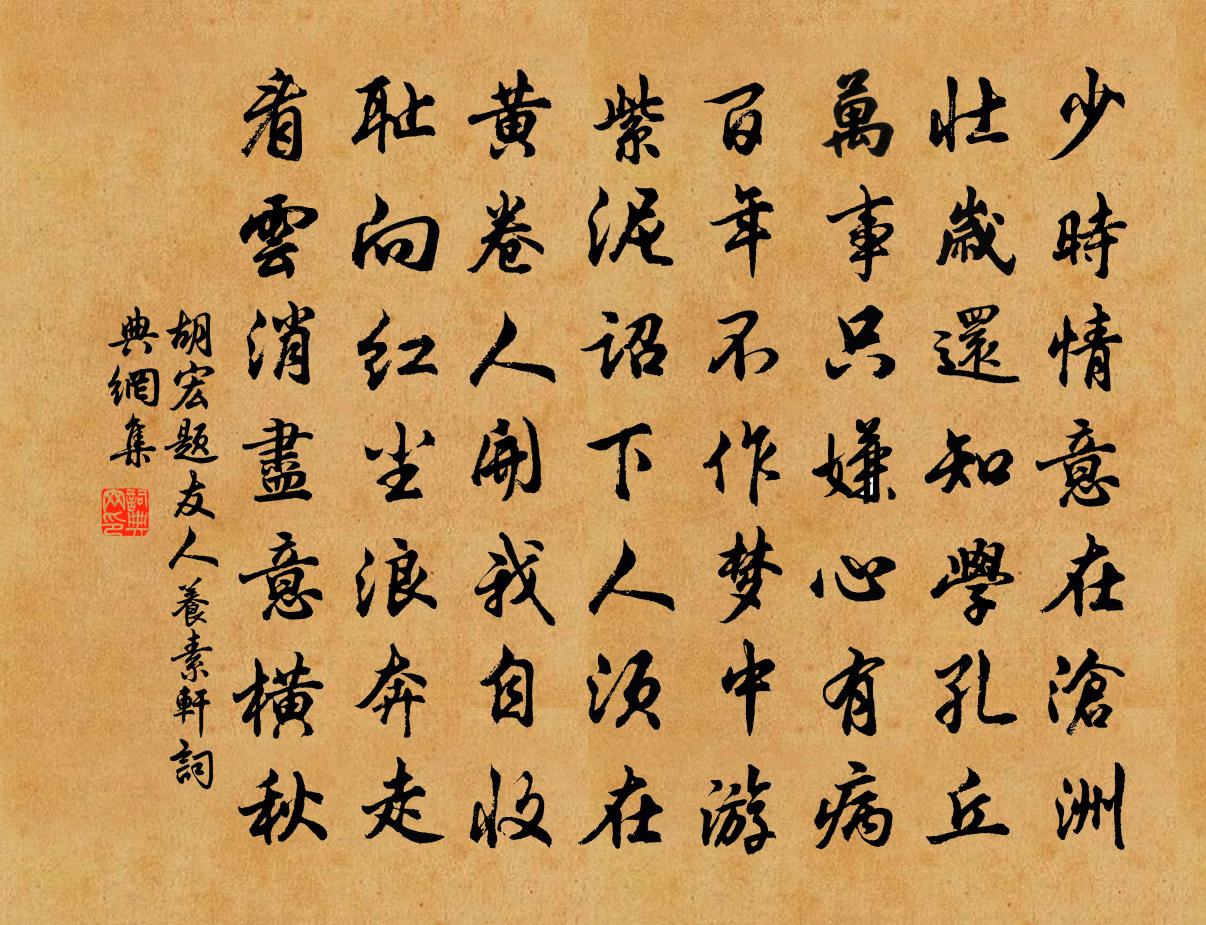 少時情意在滄洲
壯歲還知學孔丘
萬事只嫌心有病
百年不作梦中游
紫泥詔下人須在
黃卷人開我自收
耻向红尘浪奔走
看雲消盡意橫秋
胡宏题友人養素軒詞
典網集
詞典
网印